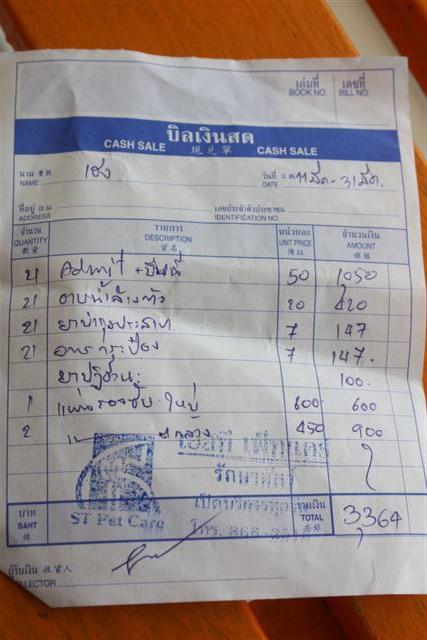 เล่มที่ เลขที่
BOOK NO. BILL NO.
บิลเงินสด
CASH SALE 現兑單 CASH SALE
นาม
NAME เฮง
วันที่
DATE 11 มีค - 31 มีค.
ที่อยู่
ADDRESS
เลขประจำตัวประชาชน
IDENTIFICATION NO.
จำนวน รายการ หน่วยละ จำนวนเงิน
QUANTITY DESCRIPTION UNIT PRICE AMOUNT
21 Admit 50 1,050
21 อาบน้ำล้างตัว 20 420
21 ยาบำรุงประสาท 7 147
21 อาหารกระป๋อง 7 147.
100.
1 แผ่นรองซับ ใหญ่ 600 600
2 กลาง 450 900
เอสที เพ็ทแคร์
รักษาสัตว์
ST Pet Care
โทร.
บาท รวมเงิน
BAHT TOTAL 3,364
ผู้รับเงิน 收貨人
COLLECTOR